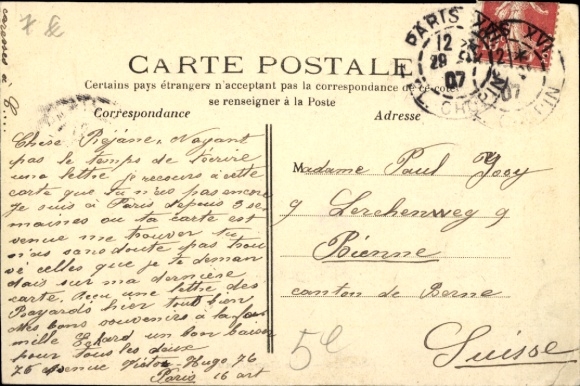 CARTE POSTALE
Certains pays étrangers n'acceptant pas la correspondance de ce coté
se renseigner à la Poste
Correspondance
Adresse
PARIS XVI
12
29
07
Chère Réjane, N'ayant
pas le temps de t'écrire
une lettre je recours à cette
carte que tu n'as pas encore
Je suis à Paris depuis 3 se-
maines ou ta carte est
venue me trouver tu
n'as sans doute pas trou
vé celles que je te deman
dais sur ma dernière
carte. Reçu une lettre des
Bayards hier tout bon
Mes bons souvenirs à la fa-
mille un bon baiser
pour tous les deux
76 Avenue Victor Hugo 76
Paris 16 art
Madame Paul
9 Lerchenweg 9
Bienne
canton de Berne
Suisse
5€
7